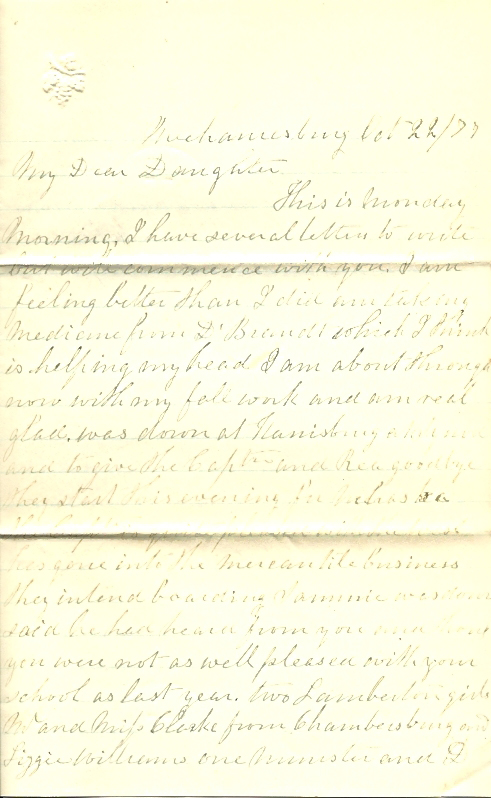 Mechanicsburg Oct 22/77
My Dear Daughter
This is Monday
Morning, I have several letters to write
but will commence with you. I am
feeling better than I did am taking
Medicine from Dr Brandt which I think
is helping my head I am about through
now with my fall work and am real
glad. was down at Harrisburg
and to give the Captn and Rea goodbye
they start this evening for Nebraska
has gone into the mercantile business
they intend boarding Sammie was down
said he had heard from you and
you were not as well pleased with your
school as last year. two Lamberton girls
Mr and Miss Clarke from Chambersburg and
Lizzie Williams one Munster and I